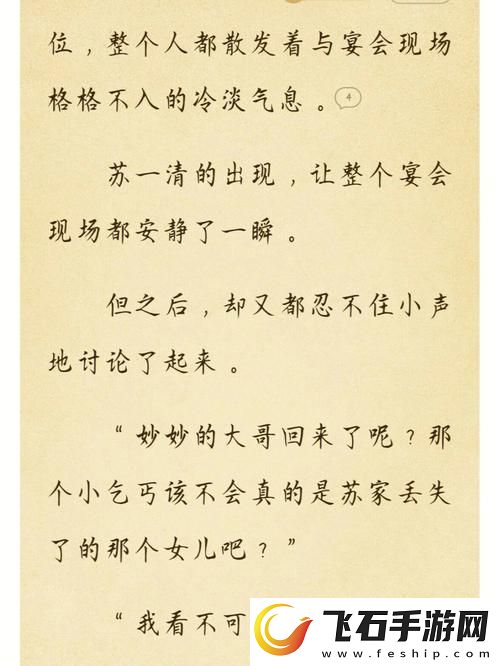 位，整个人都散发着与宴会现场
格格不入的冷淡气息。4
苏一清的出现，让整个宴会
现场都安静了一瞬。
但之后，却又都忍不住小声
地讨论了起来。
“妙妙的大哥回来了呢？那
个小乞丐该不会真的是苏家丢失
了的那个女儿吧？”
“我看不可
飞石手游网
www.feship.com